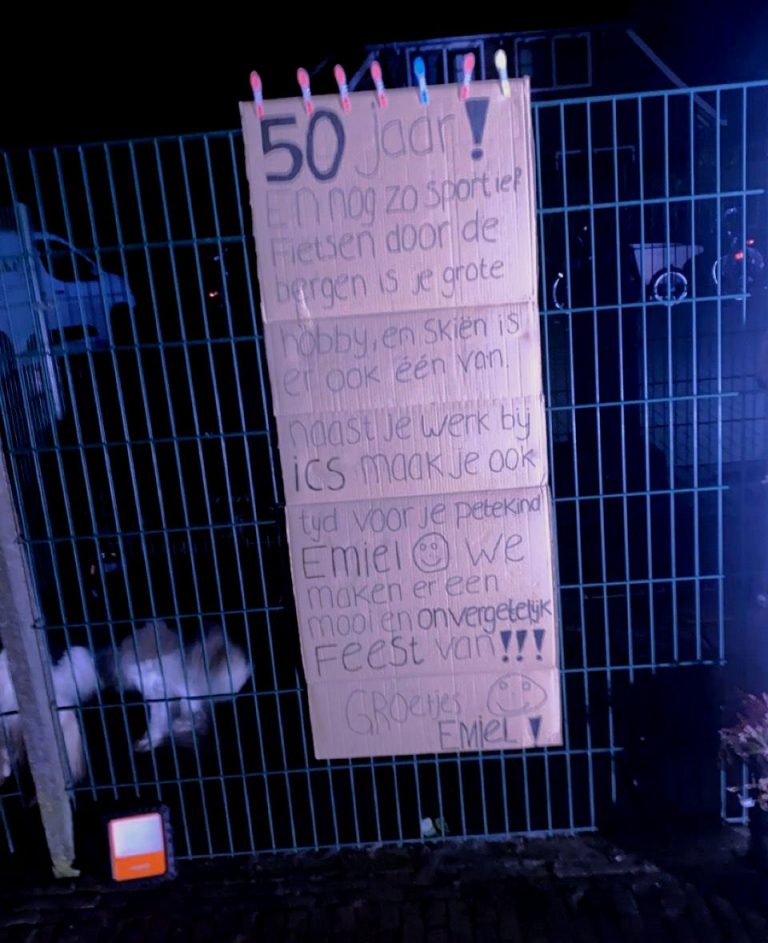 50 jaar!
En nog zo sportief
Fietsen door de
bergen is je grote
hobby, en Skiën is
er ook één van.
naast je werk bij
ics maak je ook
tijd voor je petekind
Emiel we
maken er een
mooi en onvergetelijk
Feest van!!!
GRoetjes
EMieL!